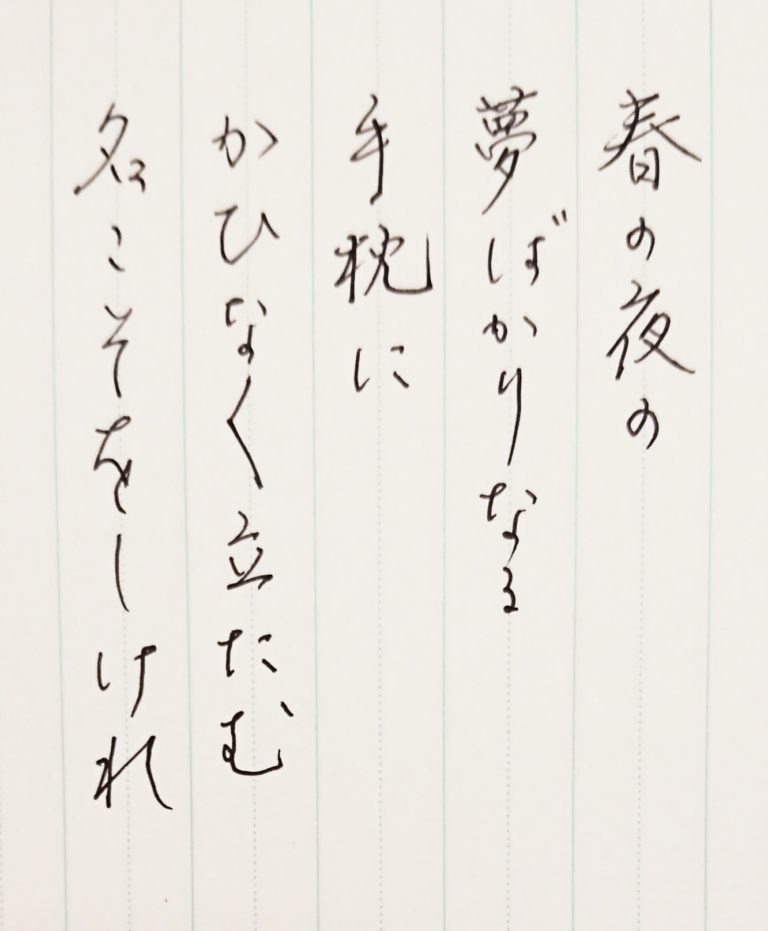 春の夜の
夢ばかりなる
手枕に
かひなく立たむ
名こそをしけれ